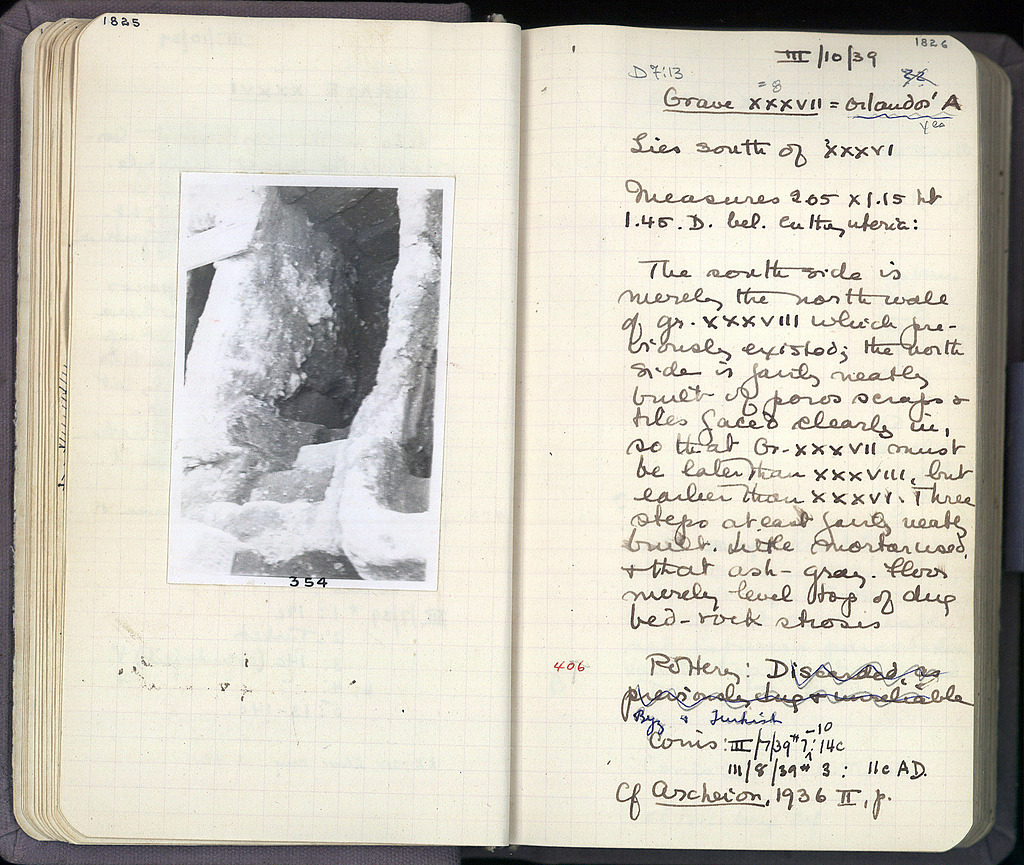 1825
354
1826
III/10/39
D7:13
=8
Grave XXXVII = Orlandos' A
Yes
Lies south of XXXVI
Measures 2.05 x 1.15 ht
1.45. D. bel.
The south side is
merely the north wall
of gr. XXXVIII which pre-
viously existed; the north
side is fairly neatly
built of poros scraps &
tiles faced clearly in,
so that Gr. XXXVII must
be later than XXXVIII, but
earlier than XXXVI. Three
steps at east fairly neatly
built. Little mortar used,
& that ash-gray. Floor
merely level top of dug
bed-rock stroses
406
Pottery: Discarded, as
previously dug & unreliable
Byz & Turkish
Coins: III/7/39 # 7-10: 14c
III/8/39 # 3: 11c AD.
Cf Archeion, 1936 II, p.